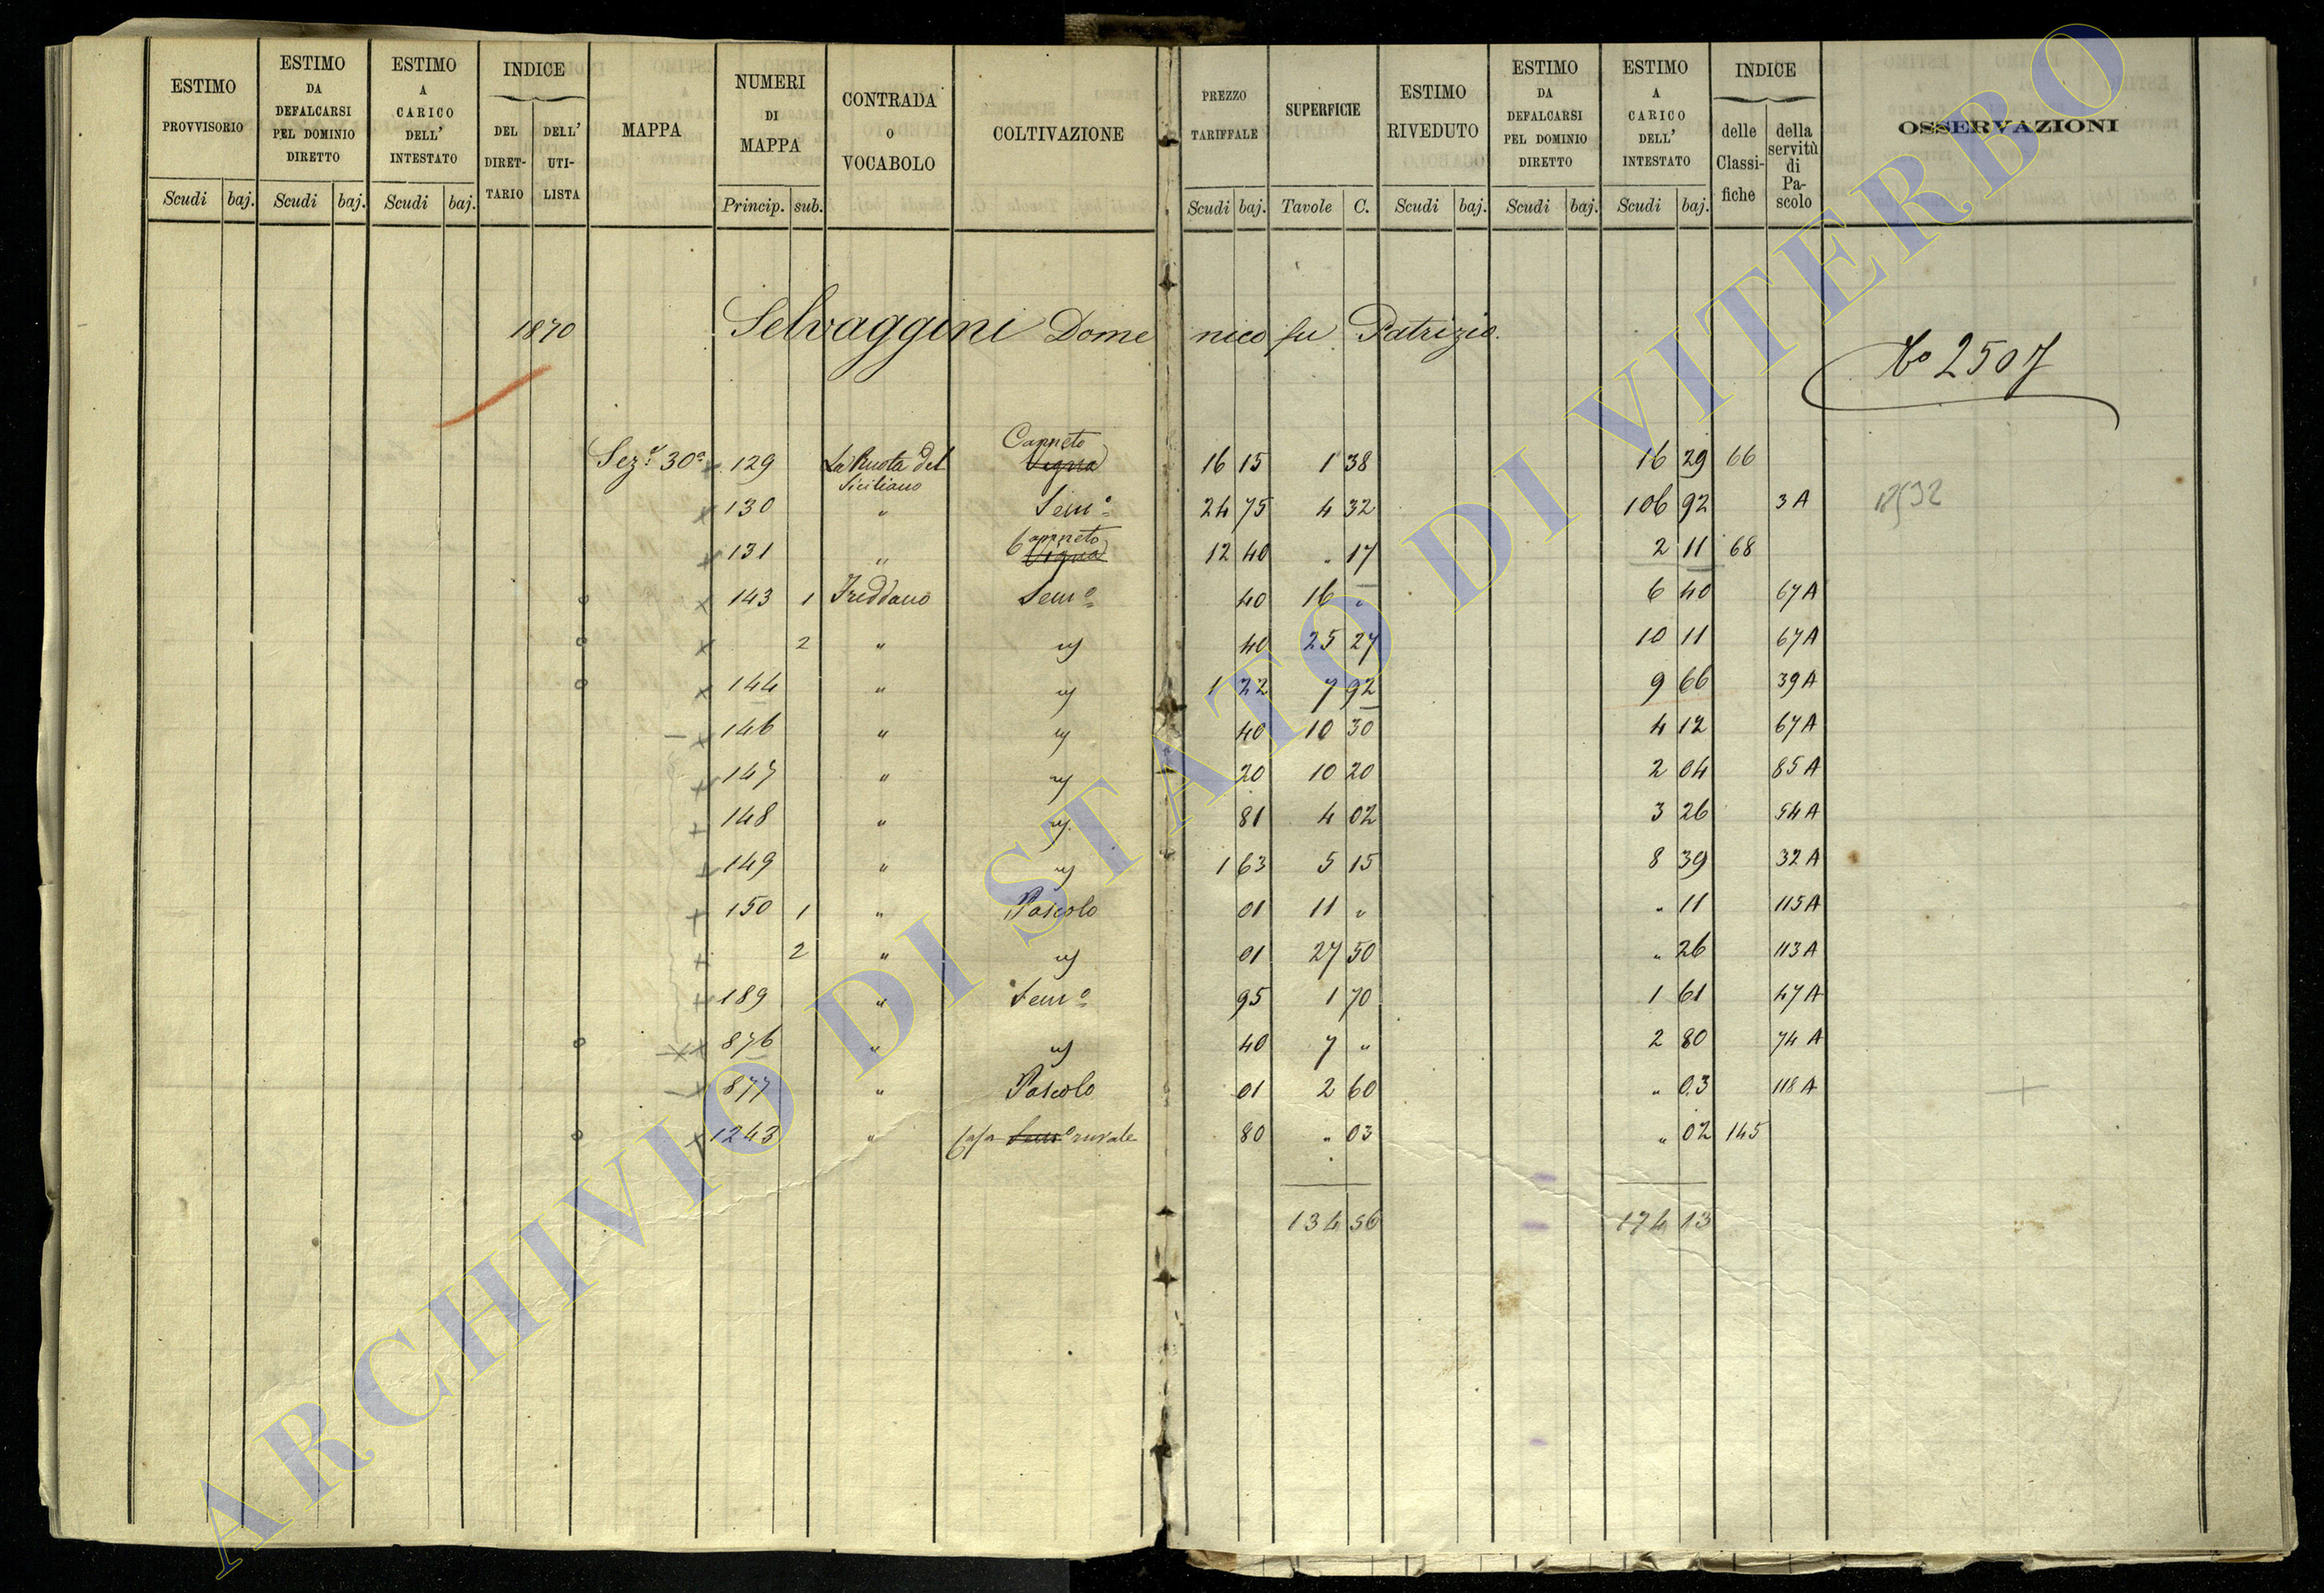 ESTIMO PROVVISORIO | ESTIMO DA DEFALCARSI PEL DOMINIO DIRETTO | ESTIMO A CARICO DELL' INTESTATO | INDICE DEL DIRET-TARIO | DELL' UTI-LISTA | MAPPA | NUMERI DI MAPPA | CONTRADA O VOCABOLO | COLTIVAZIONE | PREZZO TARIFFALE | SUPERFICIE | ESTIMO RIVEDUTO | ESTIMO DA DEFALCARSI PEL DOMINIO DIRETTO | ESTIMO A CARICO DELL' INTESTATO | INDICE delle Classi-fiche | della servitù di Pa-scolo | OSSERVAZIONI
Scudi | baj. | Scudi | baj. | Scudi | baj. | Princip. | sub. | Scudi | baj. | Tavole | C. | Scudi | baj. | Scudi | baj. | Scudi | baj.
1870 Selvaggini Domenico fu Patrizio.
No 2507
Canneto
Sez.e 30a 129 La Ruota del Siciliano Vigna 16 15 1 38 16 29 66
130 " Sem.o 24 75 4 32 106 92 3 A
Canneto
131 " Vigna 12 40 " 17 2 11 68
143 1 Freddano Sem.o 40 16 " 6 40 67 A
2 " " 40 25 27 10 11 67 A
144 " " 1 22 7 92 9 66 39 A
146 " " 40 10 30 4 12 67 A
147 " " 20 10 20 2 04 85 A
148 " " 81 4 02 3 26 54 A
149 " " 1 63 5 15 8 39 32 A
150 1 " Pascolo 01 11 " " 11 115 A
2 " " 01 27 50 " 26 113 A
189 " Sem.o 95 1 70 1 61 47 A
876 " " 40 7 " 2 80 74 A
877 " Pascolo 01 2 60 " 03 118 A
1243 " Casa Sem.o rurale 80 " 03 " 02 145
134 56 174 13
ARCHIVIO DI STATO DI VITERBO